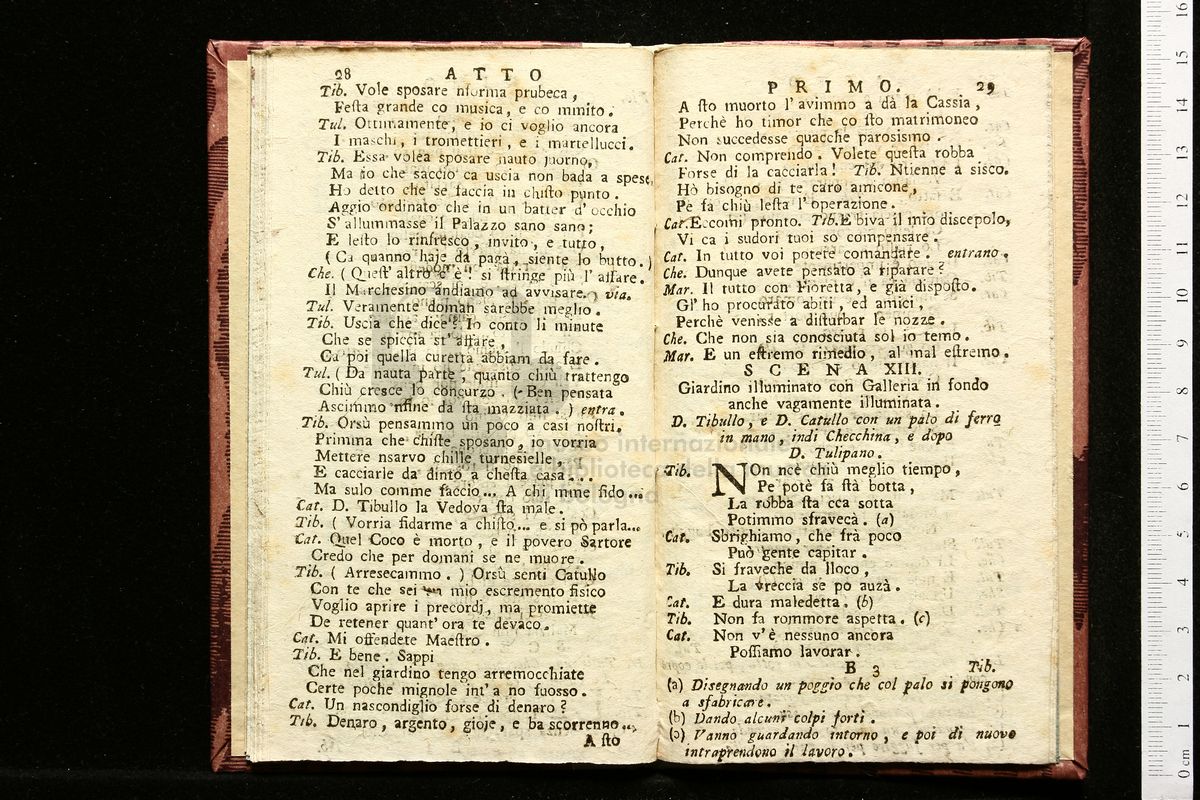 28 ATTO
Tib. Vole sposare nforma prubeca,
Festa grande co musica, e co mmito.
Tul. Ottimamente, e io ci voglio ancora
I maschi, i tromettieri, e i martellucci.
Tib. Essa volea sposare nauto juorno,
Ma io che saccio ca uscia non bada a spese,
Ho detto che se faccia in chisto punto.
Aggio ordinato che in un batter d'occhio
S'allummasse il Palazzo sano sano;
E lesto lo rinfresco, invito, e tutto,
(Ca quanno haje da pagà, siente lo butto.)
Che. (Quest' altro c'è! si stringe più l'affare.
Il Marchesino andiamo ad avvisare.) via.
Tul. Veramente doman sarebbe meglio.
Tib. Uscia che dice? Io conto li minute
Che se spiccia st'affare,
Ca poi quella curetta abbiam da fare.
Tul. (Da nauta parte, quanto chiù trattengo
Chiù cresce lo concurzo. (Ben pensata
Ascimmo nfine da sta mazziata.) entra.
Tib. Orsù pensammo un poco a casi nostri.
Primma che chiste sposano, io vorria
Mettere nsarvo chille turnesielle,
E cacciarle da dinto a chesta casa...
Ma sulo comme faccio... A chi mme fido...
Cat. D. Tibullo la Vedova sta male.
Tib. (Vorria fidarme a chisto... e si pò parla...
Cat. Quel Coco è morto, e il povero Sartore
Credo che per domani se ne muore.
Tib. (Arresecammo.) Orsù senti Catullo
Con te che sei un mio escremento fisico
Voglio aprire i precordj, ma promiette
De retener quant' ora te devaco.
Cat. Mi offendete Maestro.
Tib. E bene. Sappi
Che nel giardino tengo arremocchiate
Certe poche mignole int'a no fuosso.
Cat. Un nascondiglio forse di denaro?
Tib. Denaro, argento, gioje, e ba scorrenno...
A sto
PRIMO. 29
A sto muorto l'avimmo a dà la Cassia,
Perchè ho timor che co sto matrimoneo
Non succedesse quacche parosismo.
Cat. Non comprendo. Volete questa robba
Forse di la cacciarla! Tib. Ntienne a sisco.
Hò bisogno di te caro amicone,
Pe fa chiù lesta l'operazione.
Cat. Eccomi pronto. Tib. E biva il mio discepolo,
Vi ca i sudori tuoi so compensare.
Cat. In tutto voi potete comandare. entrano.
Che. Dunque avete pensato a riparare?
Mar. Il tutto con Fioretta, e già disposto.
Gl'ho procurato abiti, ed amici,
Perchè venisse a disturbar le nozze.
Che. Che non sia conosciuta sol io temo.
Mar. E un estremo rimedio, al mal estremo.
SCENA XIII.
Giardino illuminato con Galleria in fondo
anche vagamente illuminata.
D. Tibullo, e D. Catullo con un palo di ferro
in mano, indi Checchina, e dopo
D. Tulipano.
Tib. NOn ncè chiù meglio tiempo,
Pe potè fa stà botta,
La robba sta cca sotta
Potimmo sfravecà. (a)
Cat. Sbrighiamo, che frà poco
Può gente capitar.
Tib. Si fraveche da lloco,
La vreccia se po auzà.
Cat. E dura maledetta. (b)
Tib. Non fa rommore aspetta. (c)
Cat. Non v'è nessuno ancora
Possiamo lavorar.
B 3 Tib.
(a) Disegnando un poggio che col palo si pongono
a sfabricare.
(b) Dando alcuni colpi forti.
(c) Vanno guardando intorno, e poi di nuovo
intraprendono il lavoro.